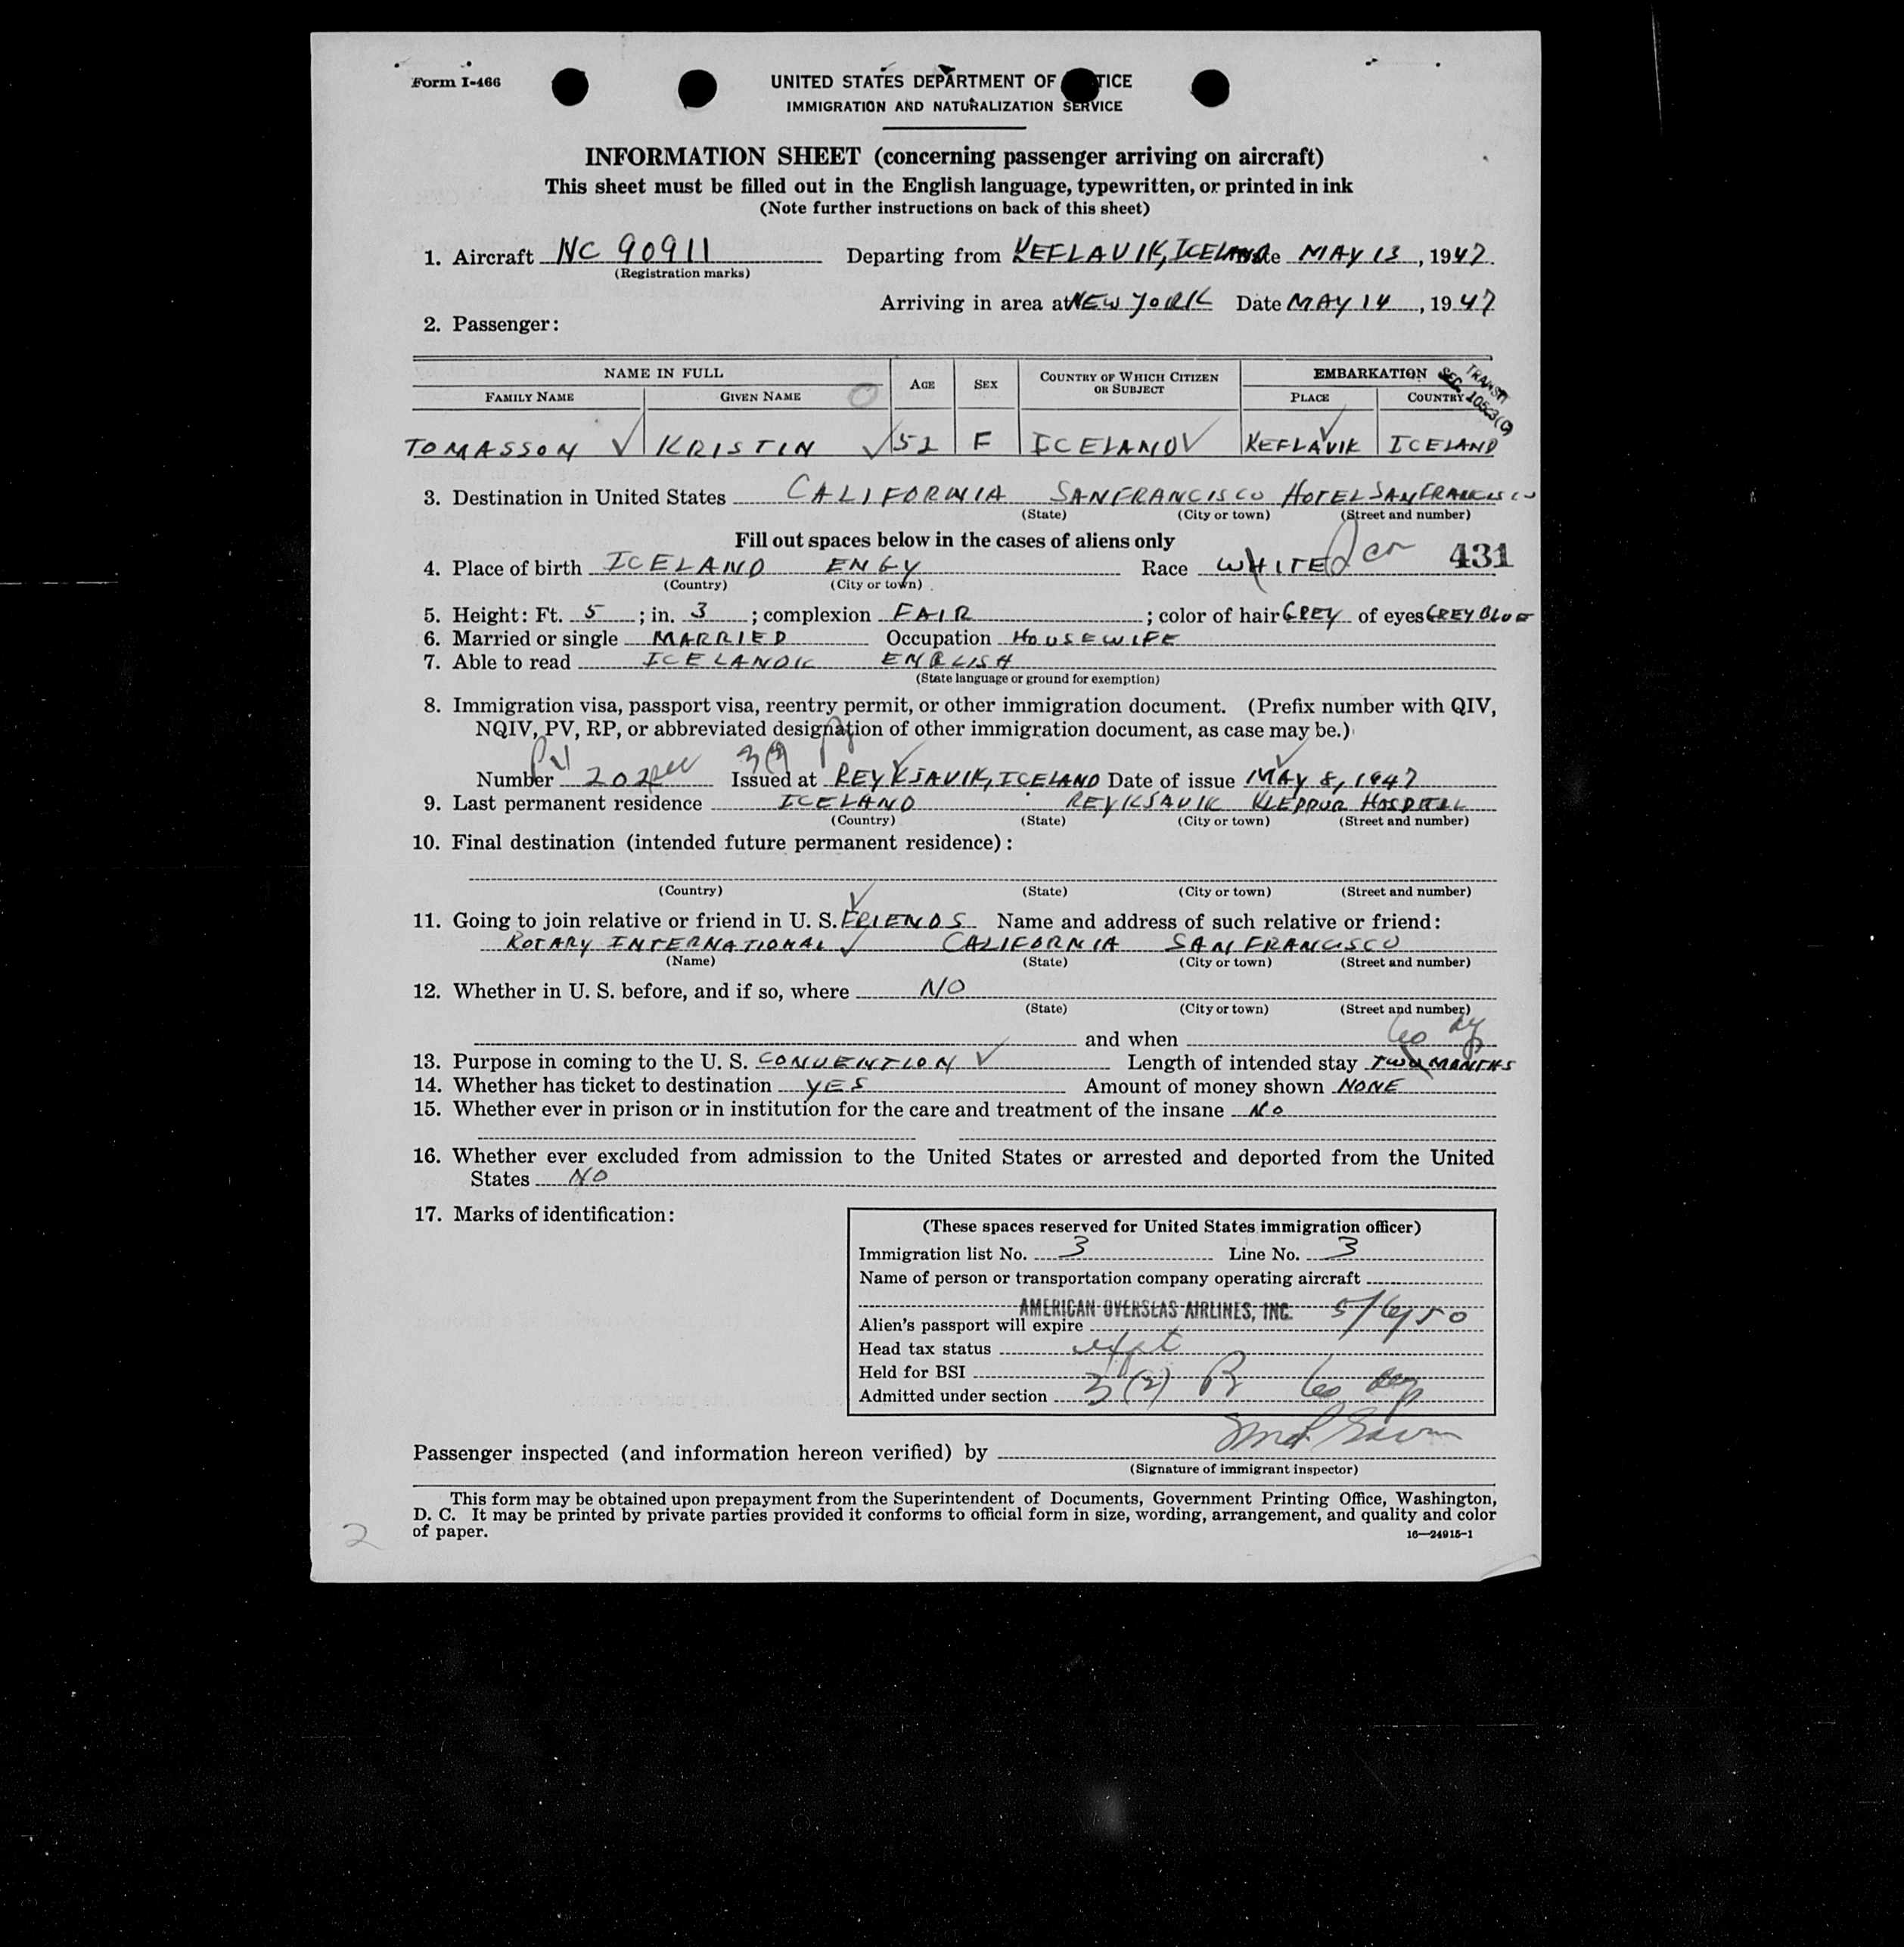 Form I-466
UNITED STATES DEPARTMENT OF TICE
IMMIGRATION AND NATURALIZATION SERVICE
INFORMATION SHEET (concerning passenger arriving on aircraft)
This sheet must be filled out in the English language, typewritten, or printed in ink
(Note further instructions on back of this sheet)
1. Aircraft NC 90911 Departing from KEFLAVIK, ICELAND MAY 13, 1947.
(Registration marks)
Arriving in area at NEW YORK Date MAY 14, 1947
2. Passenger:
NAME IN FULL AGE SEX COUNTRY OF WHICH CITIZEN OR SUBJECT EMBARKATION
FAMILY NAME GIVEN NAME PLACE COUNTRY
TRANSIT
SEC.
TOMASSON KRISTIN 52 F ICELAND KEFLAVIK ICELAND
3. Destination in United States CALIFORNIA SANFRANCISCO HOTEL SANFRANCISCO
(State) (City or town) (Street and number)
Fill out spaces below in the cases of aliens only
4. Place of birth ICELAND ENGY Race WHITE 431
(Country) (City or town)
5. Height: Ft. 5; in. 3; complexion FAIR; color of hair GREY of eyes GREY BLUE
6. Married or single MARRIED Occupation HOUSEWIFE
7. Able to read ICELANDIC ENGLISH
(State language or ground for exemption)
8. Immigration visa, passport visa, reentry permit, or other immigration document. (Prefix number with QIV,
NQIV, PV, RP, or abbreviated designation of other immigration document, as case may be.)
PV 3(2)
Number 202 Issued at REYKJAVIK, ICELAND Date of issue MAY 8, 1947
9. Last permanent residence ICELAND REYKJAVIK KLEPPUR HOSPITAL
(Country) (State) (City or town) (Street and number)
10. Final destination (intended future permanent residence):
(Country) (State) (City or town) (Street and number)
11. Going to join relative or friend in U. S. FRIENDS Name and address of such relative or friend:
ROTARY INTERNATIONAL CALIFORNIA SAN FRANCISCO
(Name) (State) (City or town) (Street and number)
12. Whether in U. S. before, and if so, where NO
(State) (City or town) (Street and number)
and when
60 dys
13. Purpose in coming to the U. S. CONVENTION Length of intended stay TWO MONTHS
14. Whether has ticket to destination YES Amount of money shown NONE
15. Whether ever in prison or in institution for the care and treatment of the insane NO
16. Whether ever excluded from admission to the United States or arrested and deported from the United
States NO
17. Marks of identification:
(These spaces reserved for United States immigration officer)
Immigration list No. 3 Line No. 3
Name of person or transportation company operating aircraft
AMERICAN OVERSEAS AIRLINES, INC.
Alien's passport will expire 5/6/50
Head tax status
Held for BSI
Admitted under section 3(2) 60 dys
Passenger inspected (and information hereon verified) by
(Signature of immigrant inspector)
This form may be obtained upon prepayment from the Superintendent of Documents, Government Printing Office, Washington,
D. C. It may be printed by private parties provided it conforms to official form in size, wording, arrangement, and quality and color
of paper.
16—24915-1
2